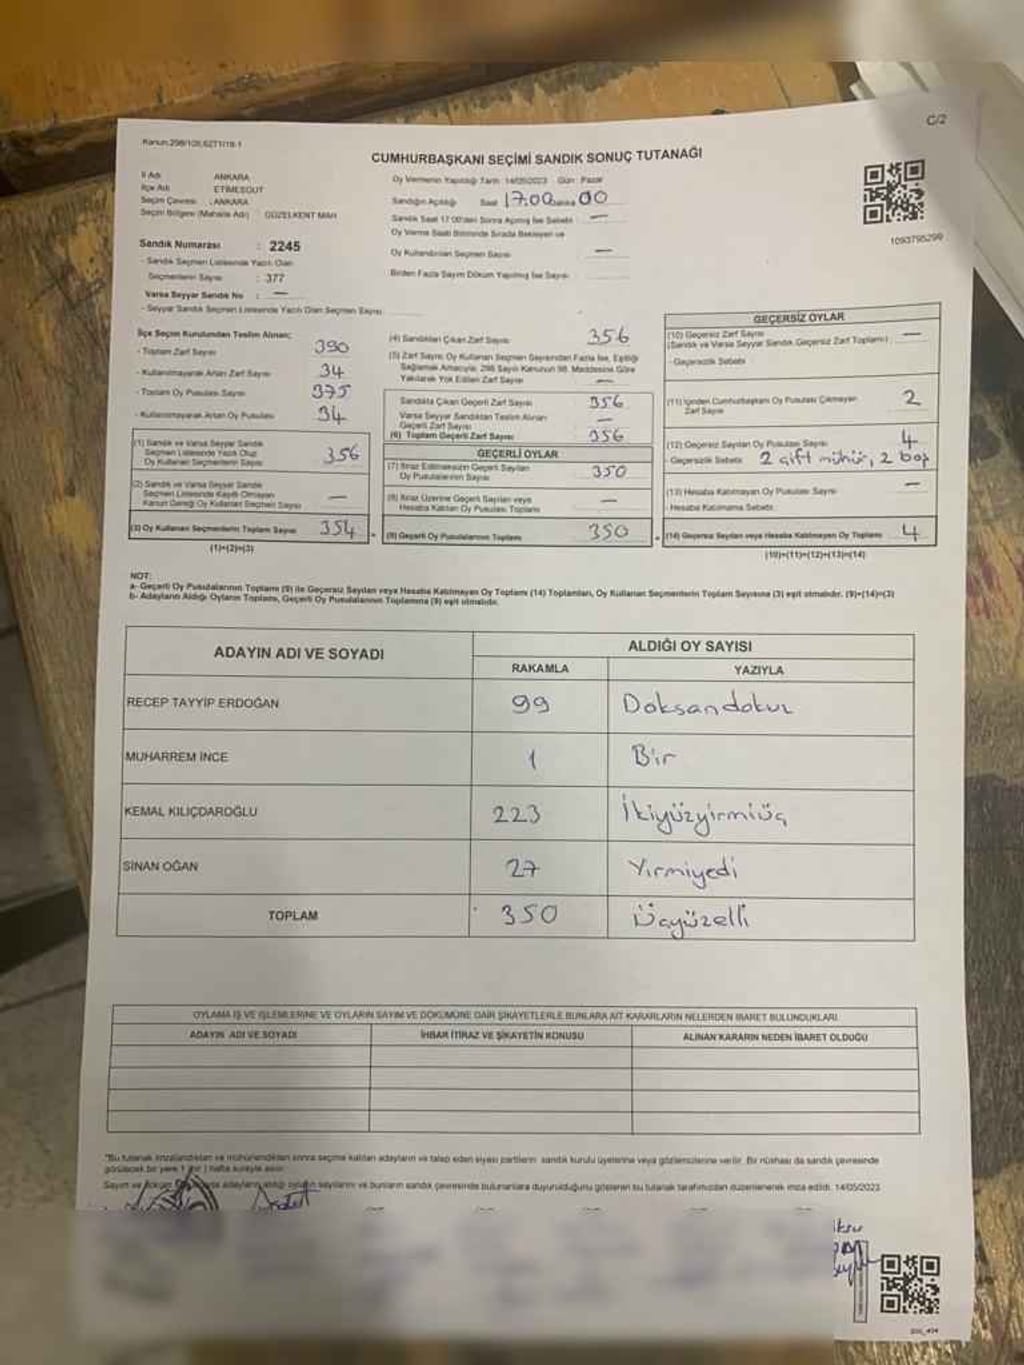 Kanun:298/105,6271/19-1
C/2
CUMHURBAŞKANI SEÇİMİ SANDIK SONUÇ TUTANAĞI
İl Adı ANKARA
İlçe Adı ETİMESGUT
Seçim Çevresi : ANKARA
Seçim Bölgesi (Mahalle Adı) : GÜZELKENT MAH
Oy Vermenin Yapıldığı Tarih: 14/05/2023 Gün : Pazar
Sandığın Açıldığı Saat 17:00 dakika 00
Sandık Saat 17:00'den Sonra Açılmış İse Sebebi : —
Oy Verme Saati Bitiminde Sırada Bekleyen ve
Oy Kullandırılan Seçmen Sayısı —
Birden Fazla Sayım Döküm Yapılmış İse Sayısı
1093795299
Sandık Numarası : 2245
- Sandık Seçmen Listesinde Yazılı Olan
Seçmenlerin Sayısı : 377
Varsa Seyyar Sandık No : —
- Seyyar Sandık Seçmen Listesinde Yazılı Olan Seçmen Sayısı
İlçe Seçim Kurulundan Teslim Alınan;
- Toplam Zarf Sayısı 390
- Kullanılmayarak Artan Zarf Sayısı 34
- Toplam Oy Pusulası Sayısı 375
- Kullanılmayarak Artan Oy Pusulası 34
(1) Sandık ve Varsa Seyyar Sandık
Seçmen Listesinde Yazılı Olup
Oy Kullanan Seçmenlerin Sayısı 356
(2) Sandık ve Varsa Seyyar Sandık
Seçmen Listesinde Kayıtlı Olmayan
Kanun Gereği Oy Kullanan Seçmen Sayısı —
(3) Oy Kullanan Seçmenlerin Toplam Sayısı 354
(1)+(2)=(3)
(4) Sandıktan Çıkan Zarf Sayısı 356
(5) Zarf Sayısı, Oy Kullanan Seçmen Sayısından Fazla İse, Eşitliği
Sağlamak Amacıyla, 298 Sayılı Kanunun 98. Maddesine Göre
Yakılarak Yok Edilen Zarf Sayısı —
Sandıkta Çıkan Geçerli Zarf Sayısı 356
Varsa Seyyar Sandıktan Teslim Alınan
Geçerli Zarf Sayısı —
(6) Toplam Geçerli Zarf Sayısı 356
GEÇERLİ OYLAR
(7) İtiraz Edilmeksizin Geçerli Sayılan
Oy Pusulalarının Sayısı 350
(8) İtiraz Üzerine Geçerli Sayılan veya
Hesaba Katılan Oy Pusulası Toplamı —
(9) Geçerli Oy Pusulalarının Toplamı 350
GEÇERSİZ OYLAR
(10) Geçersiz Zarf Sayısı —
(Sandık ve Varsa Seyyar Sandık Geçersiz Zarf Toplamı)
- Geçersizlik Sebebi
(11) İçinden Cumhurbaşkanı Oy Pusulası Çıkmayan
Zarf Sayısı 2
(12) Geçersiz Sayılan Oy Pusulası Sayısı 4
- Geçersizlik Sebebi 2 çift mühür, 2 boş
(13) Hesaba Katılmayan Oy Pusulası Sayısı —
- Hesaba Katılmama Sebebi
(14) Geçersiz Sayılan veya Hesaba Katılmayan Oy Toplamı 4
(10)+(11)+(12)+(13)=(14)
NOT:
a- Geçerli Oy Pusulalarının Toplamı (9) ile Geçersiz Sayılan veya Hesaba Katılmayan Oy Toplamı (14) Toplamları, Oy Kullanan Seçmenlerin Toplam Sayısına (3) eşit olmalıdır. (9)+(14)=(3)
b- Adayların Aldığı Oyların Toplamı, Geçerli Oy Pusulalarının Toplamına (9) eşit olmalıdır.
ADAYIN ADI VE SOYADI
ALDIĞI OY SAYISI
RAKAMLA YAZIYLA
RECEP TAYYİP ERDOĞAN 99 Doksandokuz
MUHARREM İNCE 1 Bir
KEMAL KILIÇDAROĞLU 223 İkiyüzyirmiüç
SİNAN OĞAN 27 Yirmiyedi
TOPLAM 350 Üçyüzelli
OYLAMA İŞ VE İŞLEMLERİNE VE OYLARIN SAYIM VE DÖKÜMÜNE DAİR ŞİKAYETLERLE BUNLARA AİT KARARLARIN NELERDEN İBARET BULUNDUKLARI
ADAYIN ADI VE SOYADI İHBAR İTİRAZ VE ŞİKAYETİN KONUSU ALINAN KARARIN NEDEN İBARET OLDUĞU
"Bu tutanak imzalandıktan ve mühürlendikten sonra seçime katılan adayların ve talep eden siyasi partilerin sandık kurulu üyelerine veya gözlemcilerine verilir. Bir nüshası da sandık çevresinde
görülecek bir yere 1 (bir) hafta süreyle asılır.
Sayım ve döküm adayların aldığı oyların sayılarını ve bunların sandık çevresinde bulunanlara duyurulduğunu gösteren bu tutanak tarafımızdan düzenlenerek imza edildi. 14/05/2023